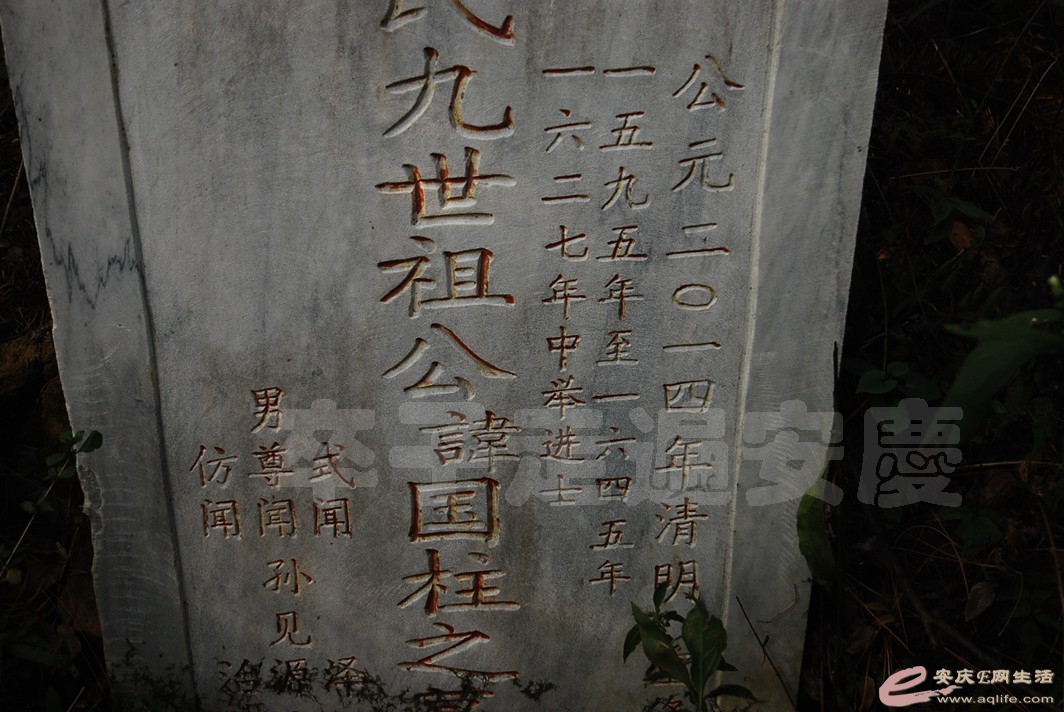 公元二〇一四年清明
一五九五年至一六四五年
一六二七年中举进士
氏九世祖公諱国柱之
式闻
男尊闻孙见
仿闻
泽
源
治
卒子走过安慶
安庆E网生活
www.aqlife.com